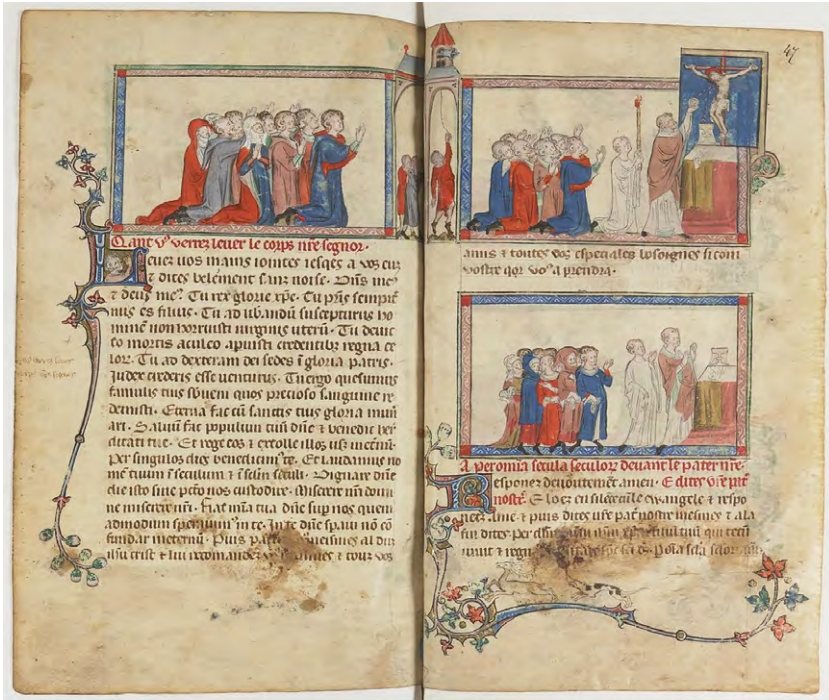 Qant vꝰ verrez leuer le corps nr̃e segnor·
Leuez uos mains iointes iesqes a voz euz
⁊ dites belement sanz noise. Dñs meꝰ
⁊ deus meꝰ. Tu rex glorie xp̃e. Tu pr̃is sempit̾
nus es filius. Tu ad lib̾andũ suscepturus ho
minẽ non horruisti uirginis uterũ. Tu deuic
to mortis aculeo apuisti credentibꝫ regna ce
lor. Tu ad dexteram dei sedes ĩ gloria patris.
Judex crederis esse uenturus. Tu ergo quesumus
famulis tuis sbueni quos precioso sanguine re
demisti. Eterna fac cũ sanctis tuis gloria mun
ari. Saluũ fac populum tuũ dñe ⁊ benedic her
ditati tue. Et rege eos ⁊ extolle illos usqꝫ inet̾nũ.
Per singulos dies benedicimꝰ te. Et laudamus no
men tuum ĩ seculum ⁊ ĩ sc̃lm sc̃li. Dignare dñe
die isto sine pctõ nos custodire. Miserere nr̃i domi
ne miserere nr̃i. Fiat mia tua dñe sup nos quem
admodum sperauimꝰ in te. In te dñe spaui nõ cõ
fundar ineternũ. Puis meismes al
crist ⁊ lui recomandez ⁊ touz voz
47
amis ⁊ toutes voz especiales bosoignes si com
vostre qor voꝰ aprendra.
A per omia secula seculoꝝ deuant le pater nr̃e.
Responez deuoutement amen. E dites vr̃e pat̾
nostr̃. E loez en silence le ewangele ⁊ respo
nez ame ⁊ puis dites vr̃e pat̾ nostre meismes ⁊ a la
fin dites Per tuũ qui tecũ
uiuit ⁊ regn sc̃i ds̃. P oĩa sc̃la sc̃loꝝ am̃.